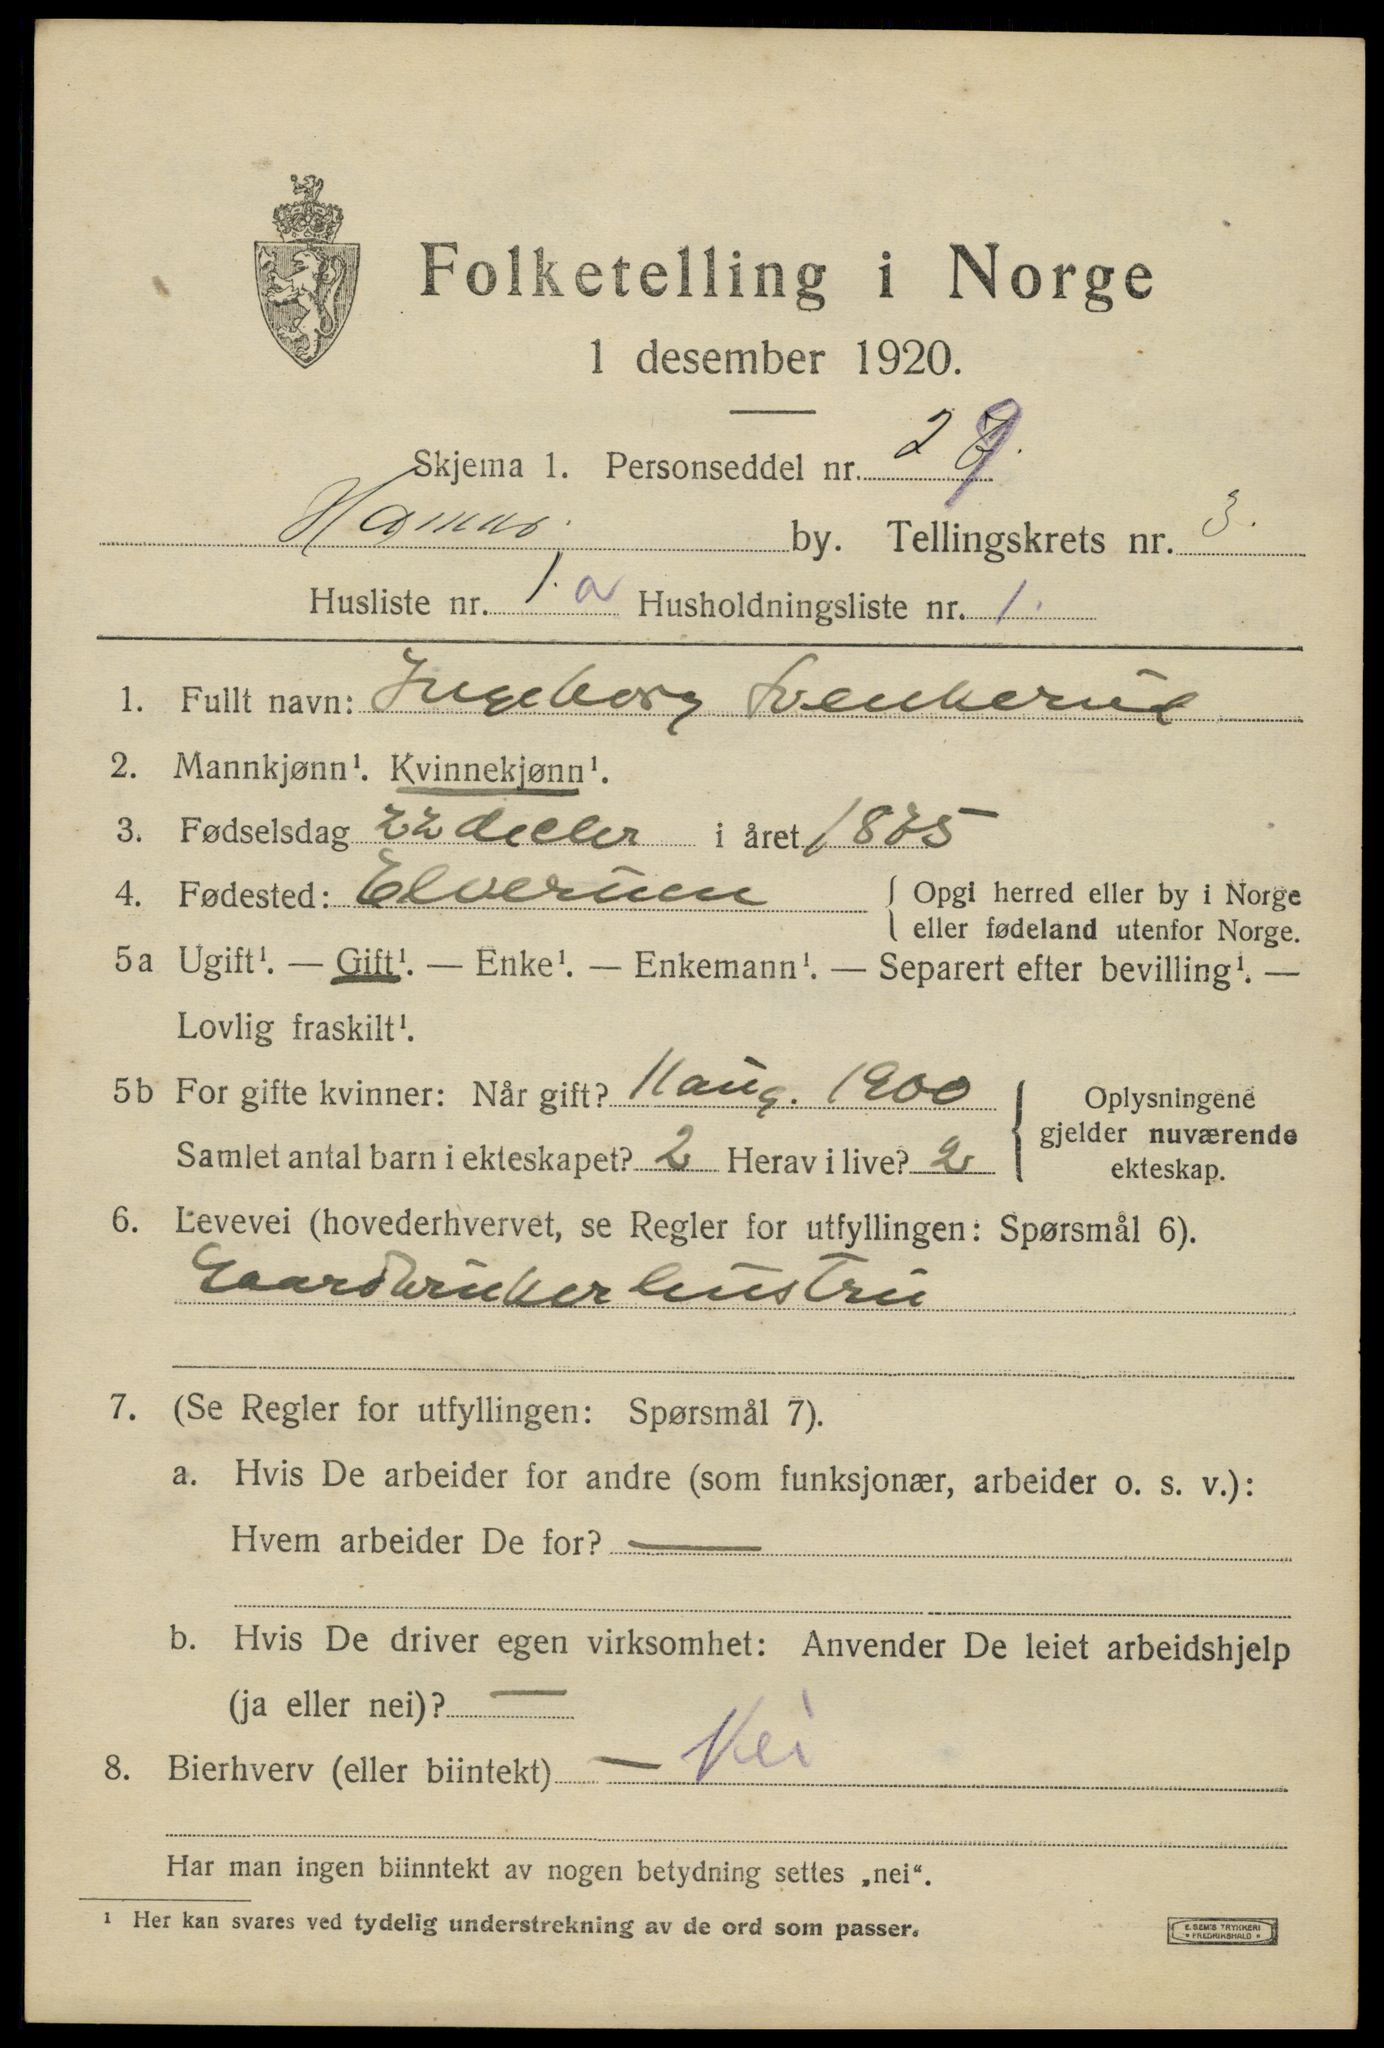 Folketelling i Norge
1 desember 1920.
Skjema 1. Personseddel nr. 29
Hamar by. Tellingskrets nr. 3.
Husliste nr. 1. a Husholdningsliste nr. 1.
1. Fullt navn: Ingeborg Svenkerud
2. Mannkjønn¹. Kvinnekjønn¹.
3. Fødselsdag 22 decbr i året 1875
4. Fødested: Elverum { Opgi herred eller by i Norge
eller fødeland utenfor Norge.
5a Ugift¹. — Gift¹. — Enke¹. — Enkemann¹. — Separert efter bevilling¹. —
Lovlig fraskilt¹.
5b For gifte kvinner: Når gift? 11 aug. 1900 } Oplysningene
gjelder nuværende
Samlet antal barn i ekteskapet? 2 Herav i live? 2
ekteskap.
6. Levevei (hovederhvervet, se Regler for utfyllingen: Spørsmål 6).
Gaardbrukerhustru
7. (Se Regler for utfyllingen: Spørsmål 7).
a. Hvis De arbeider for andre (som funksjonær, arbeider o. s. v.):
Hvem arbeider De for? —
b. Hvis De driver egen virksomhet: Anvender De leiet arbeidshjelp
(ja eller nei)? —
8. Bierhverv (eller biintekt) — Nei
Har man ingen biinntekt av nogen betydning settes „nei“.
¹ Her kan svares ved tydelig understrekning av de ord som passer.
E. SEM'S TRYKKERI
FREDRIKSHALD